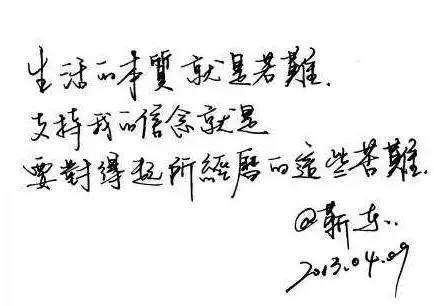 生活的本質就是苦難.
支持我的信念就是
要對得起所經歷的這些苦難.
@靳东..
2013.04.09